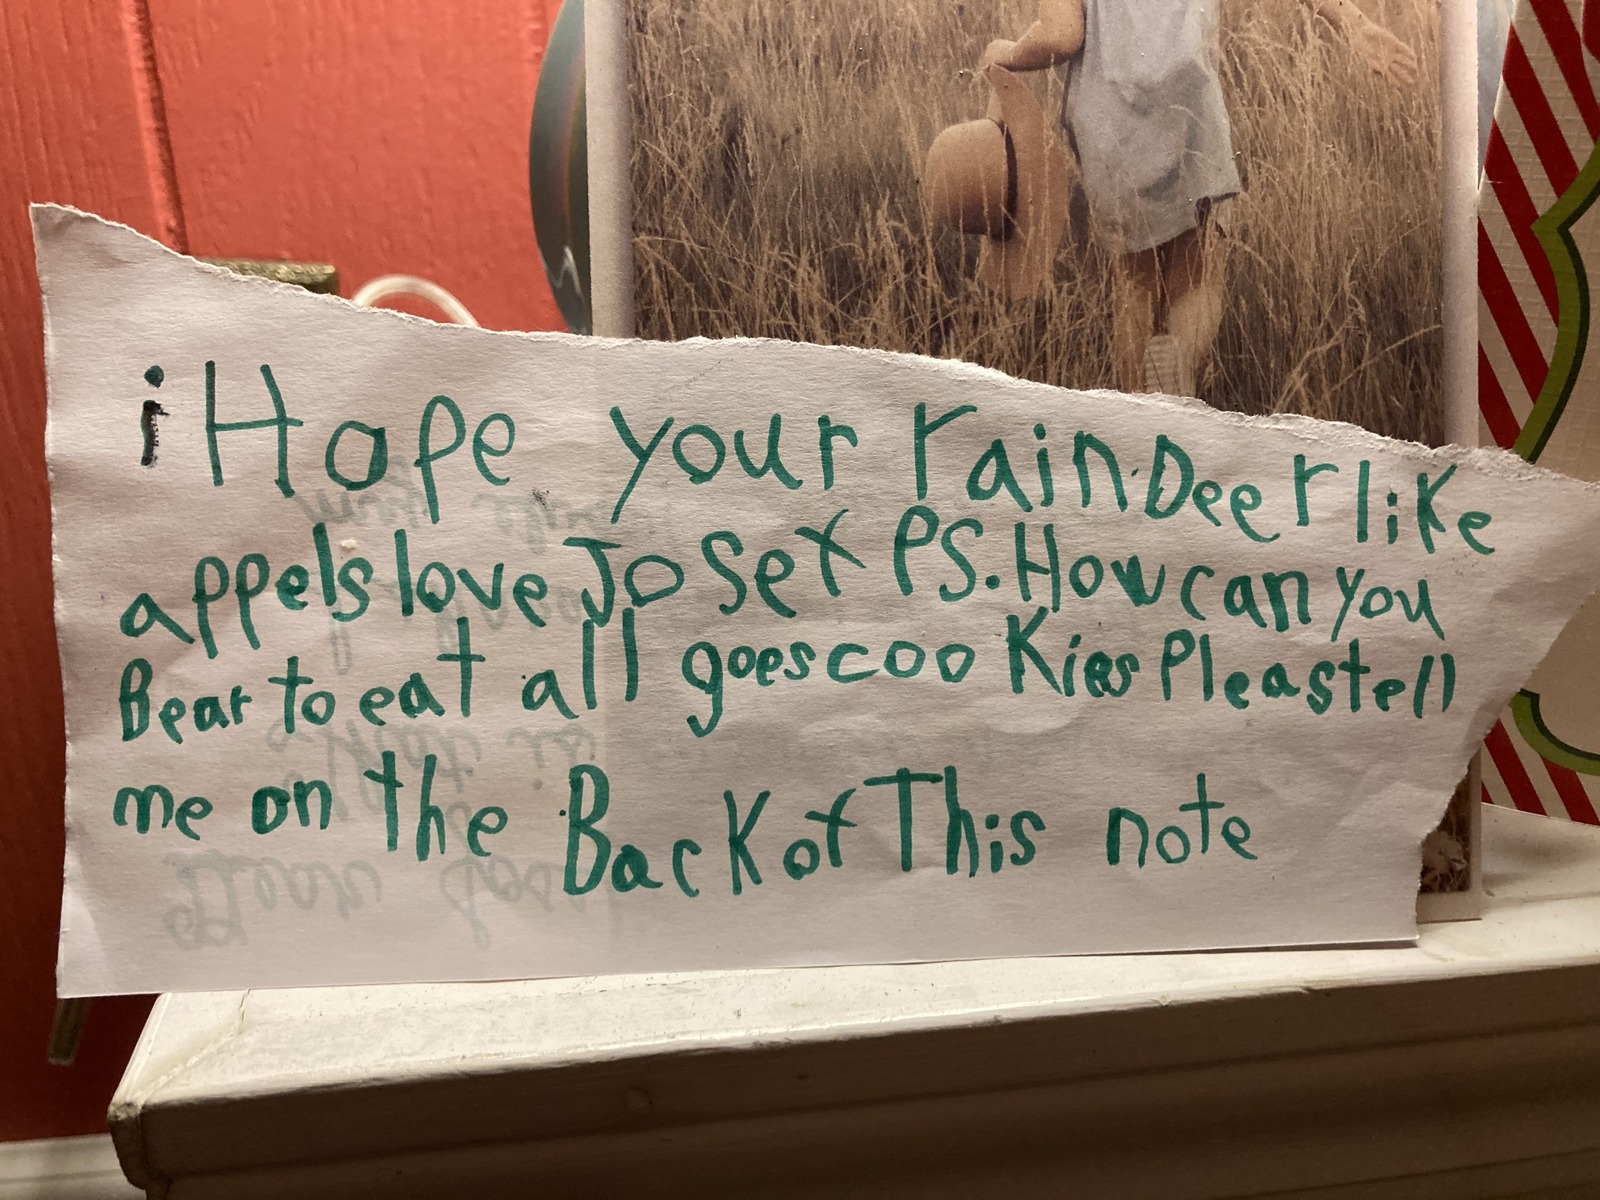 i Hope your rain.Deer like
appels love Josef PS. How can you
Bear to eat all goes cooKies Please tell
me on the Back of This note